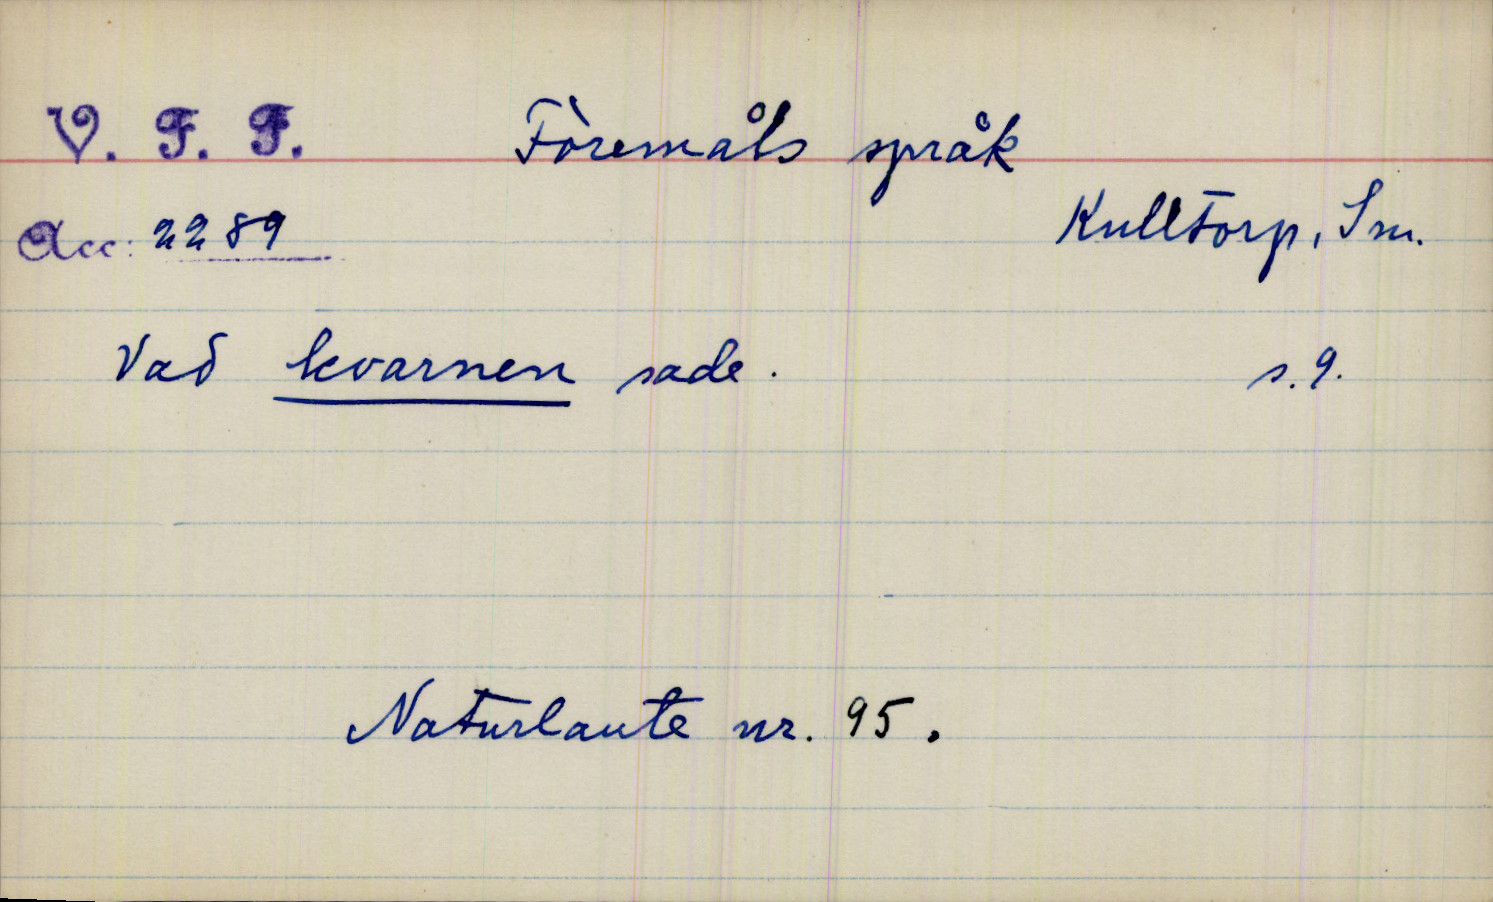 V. F. F. Föremåls språk
Acc: 2289 Kulltorp, Sm.
Vad kvarnen sade. s. 9.
Naturlaute nr. 95.